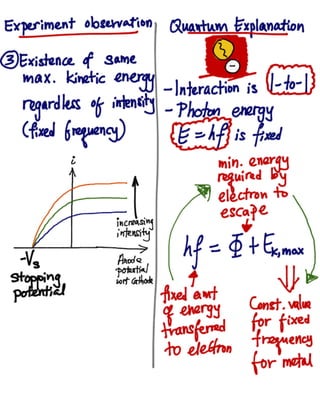 Experiment observation
③ Existence of same
max. kinetic energy
regardless of intensity
(fixed frequency)
i
increasing
intensity
-Vs
Stopping
potential
Anode
potential
wrt Cathode
Quantum Explanation
-
- Interaction is 1-to-1
- Photon energy
E = hf is fixed
min. energy
required by
electron to
escape
hf = Φ + Ek,max
fixed amt
of energy
transferred
to electron
Const. value
for fixed
frequency
for metal